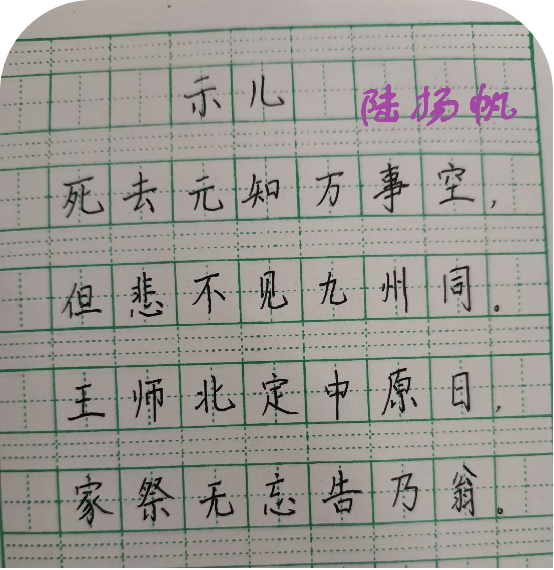 示儿 陆扬帆
死去元知万事空，
但悲不见九州同。
王师北定中原日，
家祭无忘告乃翁。